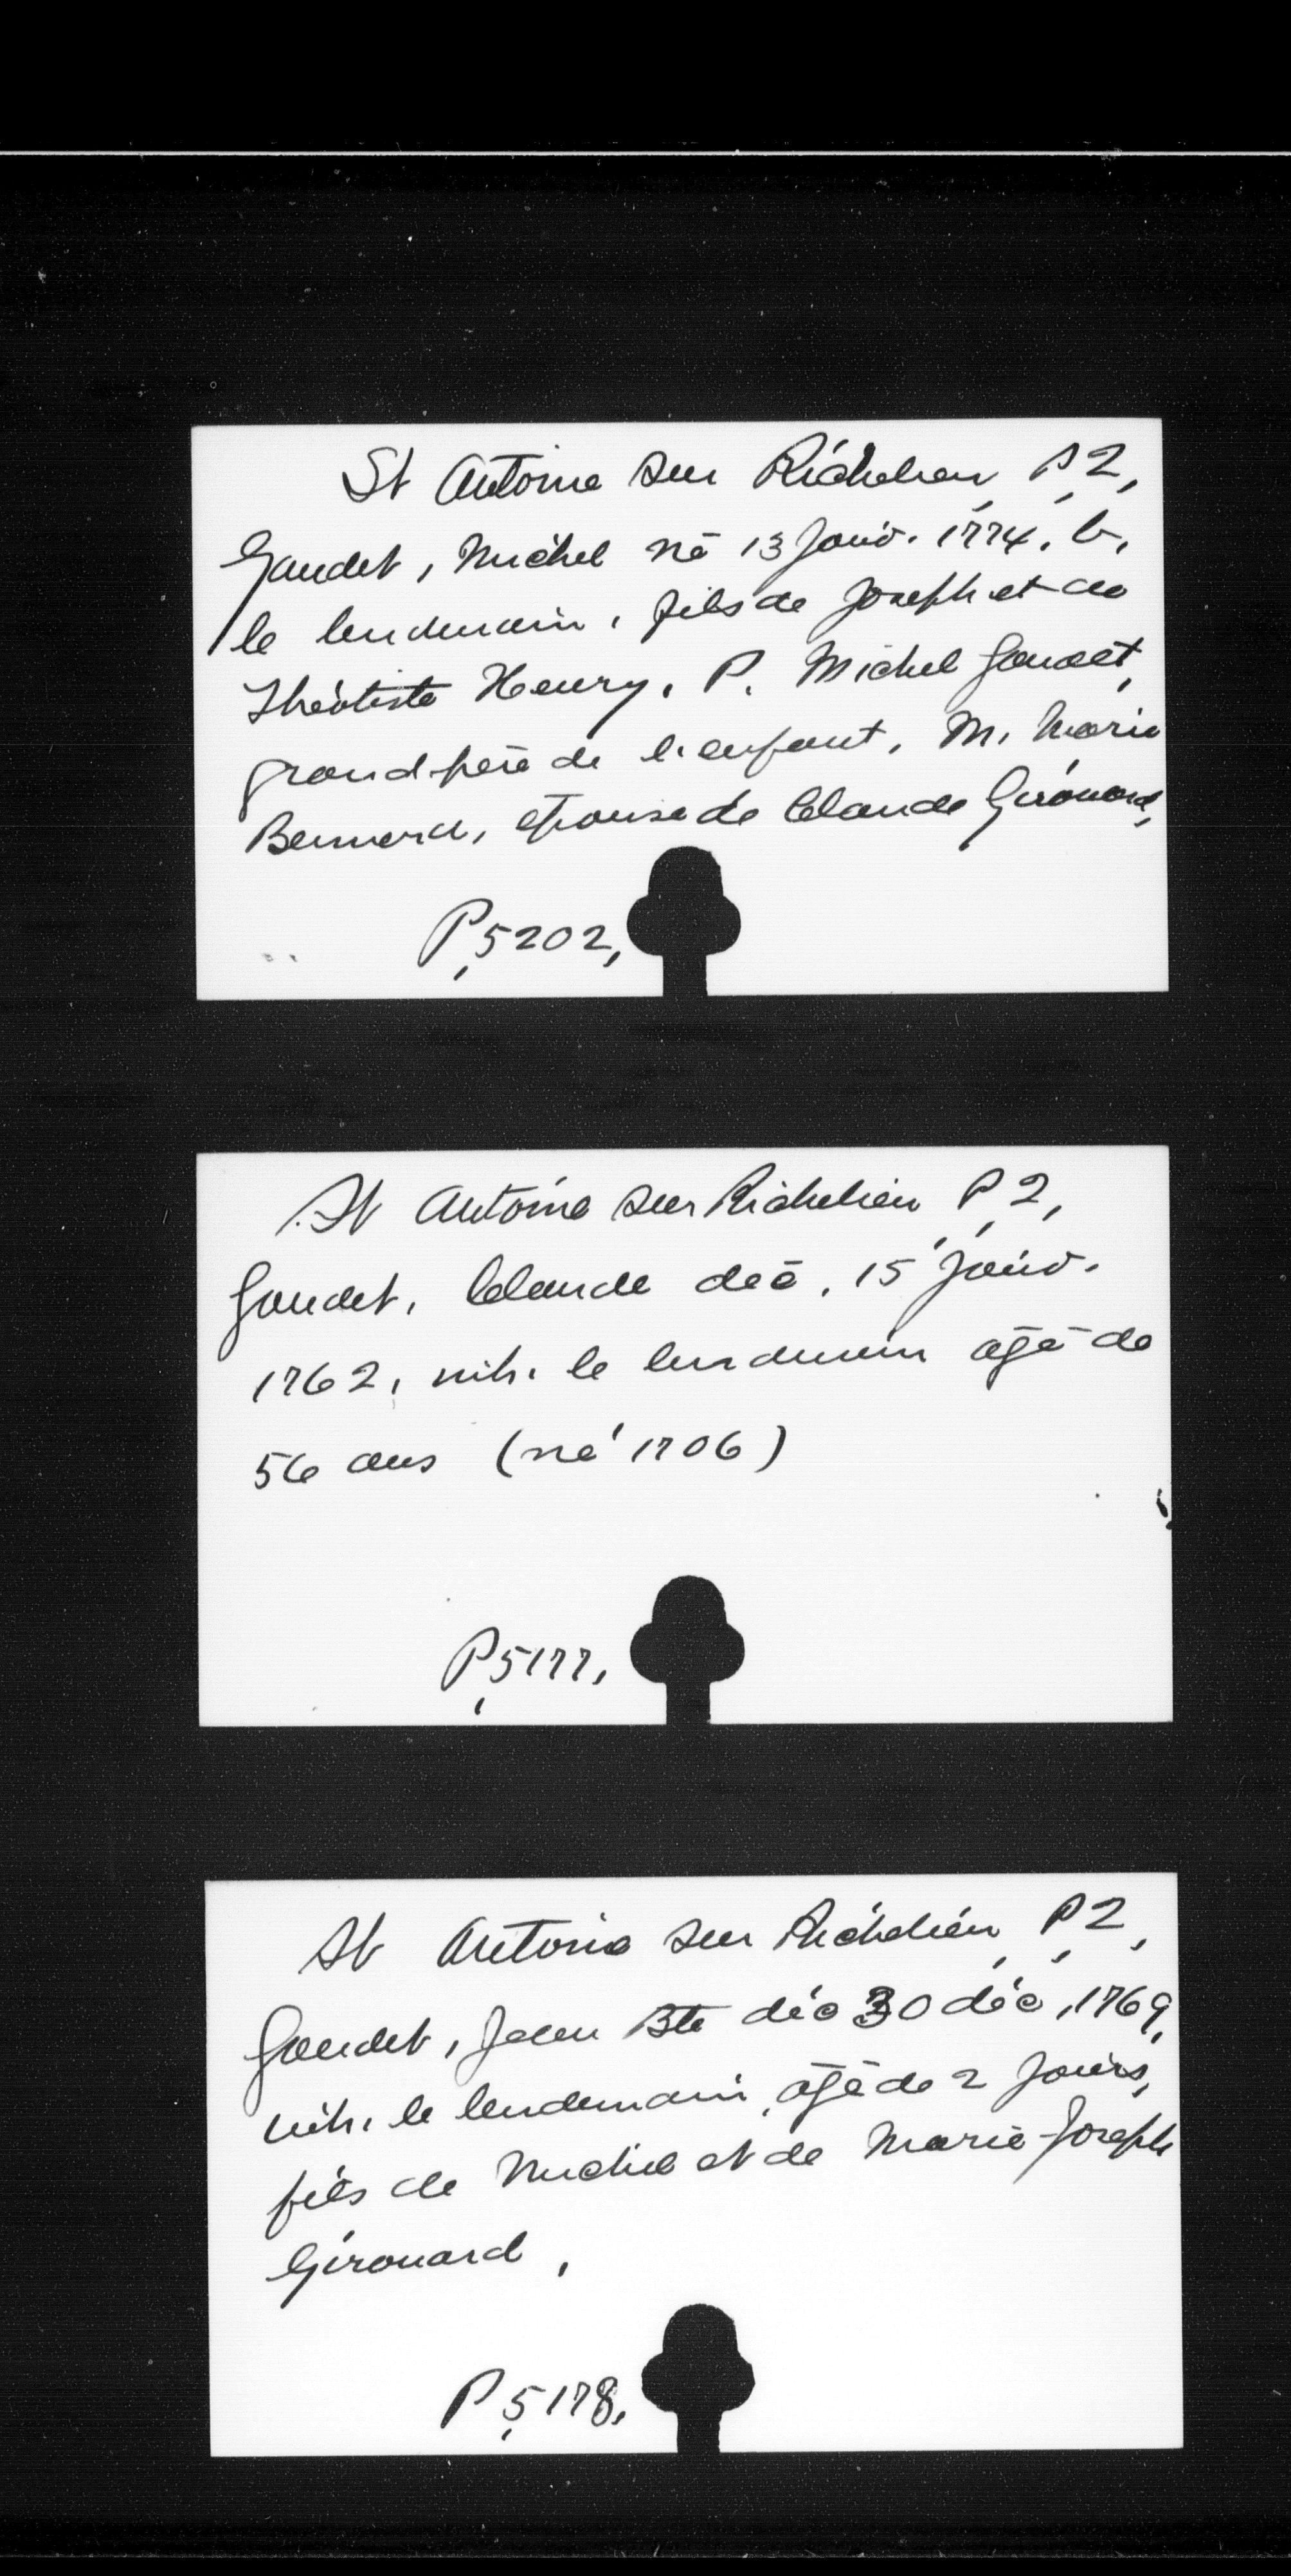 St Antoine sur Richelieu, P, 2,
Gaudet, Michel né 13 janv. 1774, b,
le lendemain, fils de Joseph et de
Théotiste Henry, P. Michel Gaudet,
grand-père de l'enfant, M, Marie
Bernard, épouse de Claude Girouard,
P, 5202,
St Antoine sur Richelieu, P, 2,
Gaudet, Claude déc, 15 janv.
1762, inh. le lendemain âgé de
56 ans (né 1706)
P, 5177,
St Antoine sur Richelieu, P, 2,
Gaudet, Jean Bte déc 30 déc, 1769,
inh. le lendemain, âgé de 2 jours,
fils de Michel et de Marie-Joseph
Girouard,
P, 5178,